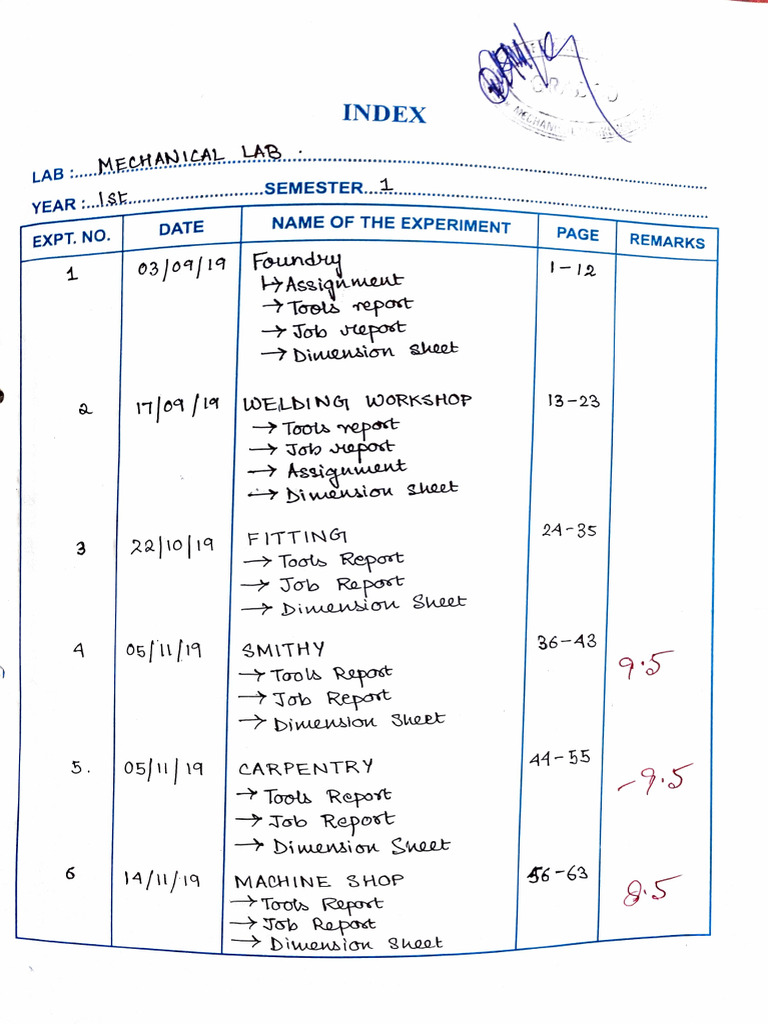 INDEX
LAB : MECHANICAL LAB .
YEAR : 1st SEMESTER 1
EXPT. NO. DATE NAME OF THE EXPERIMENT PAGE REMARKS
1 03/09/19 Foundry 1-12
↳ Assignment
→ Tools report
→ Job report
→ Dimension sheet
2 17/09/19 WELDING WORKSHOP 13-23
→ Tools report
→ Job report
→ Assignment
→ Dimension sheet
3 22/10/19 FITTING 24-35
→ Tools Report
→ Job Report
→ Dimension Sheet
4 05/11/19 SMITHY 36-43 9.5
→ Tools Report
→ Job Report
→ Dimension Sheet
5. 05/11/19 CARPENTRY 44-55 -9.5
→ Tools Report
→ Job Report
→ Dimension Sheet
6 14/11/19 MACHINE SHOP 56-63 8.5
→ Tools Report
→ Job Report
→ Dimension Sheet